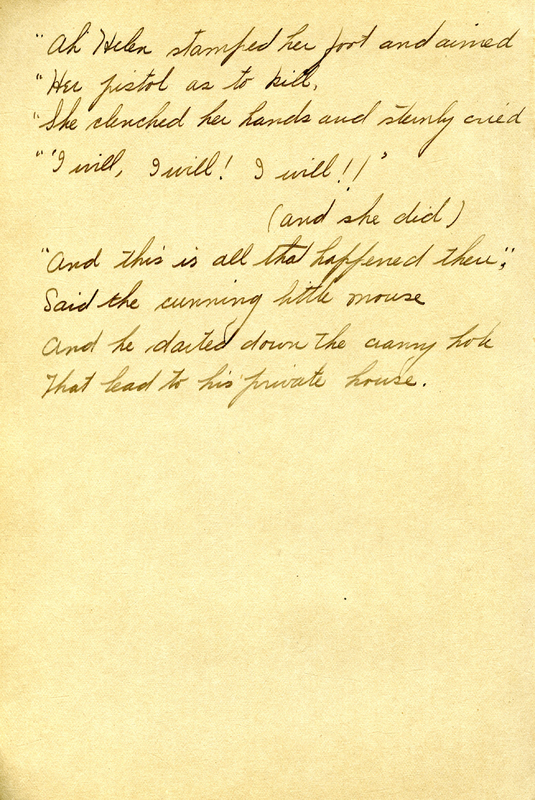 "Ah Helen stamped her foot and aimed
"Her pistol as to kill,
"She clenched her hands and sternly cried
"'I will, I will! I will!!'
(and she did)
"And this is all that happened there",
Said the cunning little mouse
And he darted down the cranny hole
That lead to his private house.